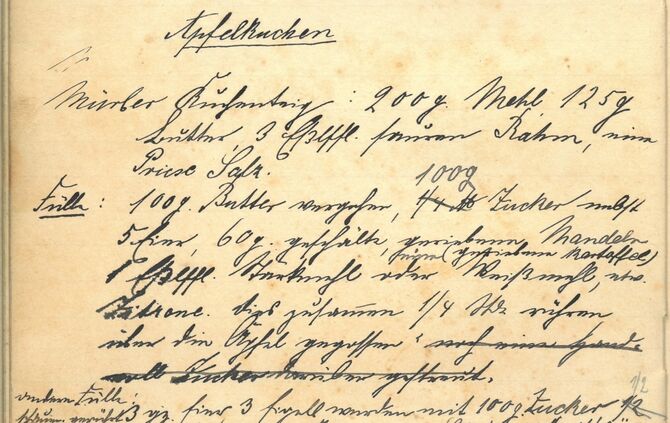 Apfelkuchen
Mürber Kuchenteig : 200g. Mehl, 125g
Butter, 3 Eßlffl. sauren Rahm, eine
Priese Salz.
100g
Fülle: 100g. Butter vergehen, 1/4 ℔ Zucker nebst
5 Eier, 60g. geschälte geriebene Mandeln
(geriebene Kartoffel)
1 Eßlffl. Starkmehl oder Weißmehl, etw.
Zitrone. dies zusammen 1/4 Std. rühren
über die Äpfel gegossen noch eine Hand-
voll Zucker darüber gestreut.
1/2
andere Fülle:
3 gz. Eier, 3 Eigelb werden mit 100g Zucker 1/2